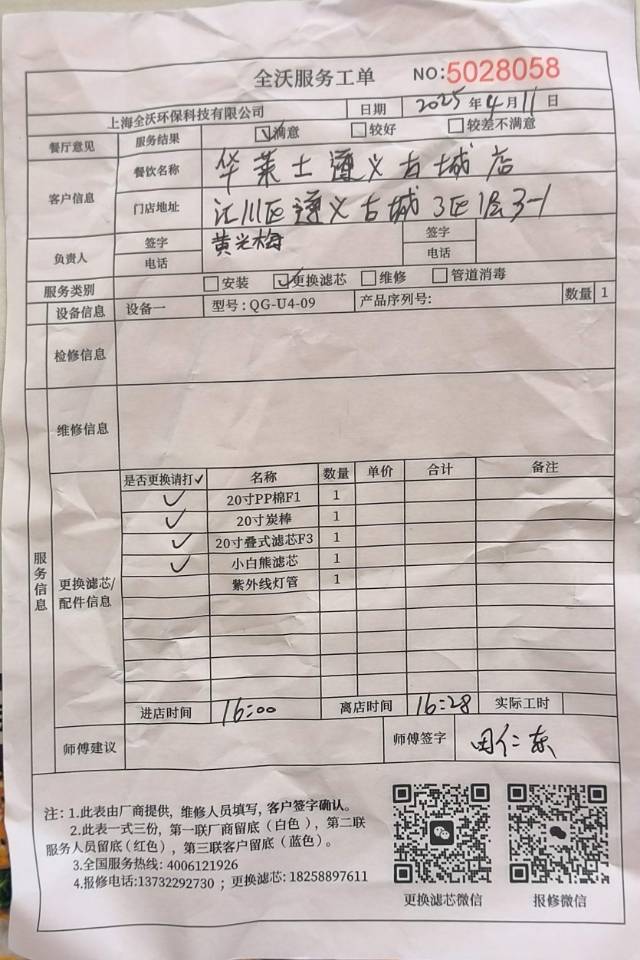 全沃服务工单 NO:5028058
上海全沃环保科技有限公司 日期 2025年4月11日
餐厅意见 服务结果 ☑满意 □较好 □较差不满意
客户信息 餐饮名称 华莱士遵义古城店
门店地址 汇川区遵义古城3区1层3-1
负责人 签字 黄光梅 签字
电话 电话
服务类别 □安装 ☑更换滤芯 □维修 □管道消毒
设备信息 设备一 型号:QG-U4-09 产品序列号: 数量 1
检修信息
维修信息
服务信息
更换滤芯/
配件信息
是否更换请打✓ 名称 数量 单价 合计 备注
✓ 20寸PP棉F1 1
✓ 20寸炭棒 1
✓ 20寸叠式滤芯F3 1
✓ 小白熊滤芯 1
紫外线灯管 1
进店时间 16:00 离店时间 16:28 实际工时
师傅建议 师傅签字 田仁东
注: 1.此表由厂商提供, 维修人员填写, 客户签字确认。
2.此表一式三份, 第一联厂商留底(白色), 第二联
服务人员留底(红色), 第三联客户留底(蓝色)。
3.全国服务热线: 4006121926
4.报修电话:13732292730 ; 更换滤芯: 18258897611
更换滤芯微信 报修微信